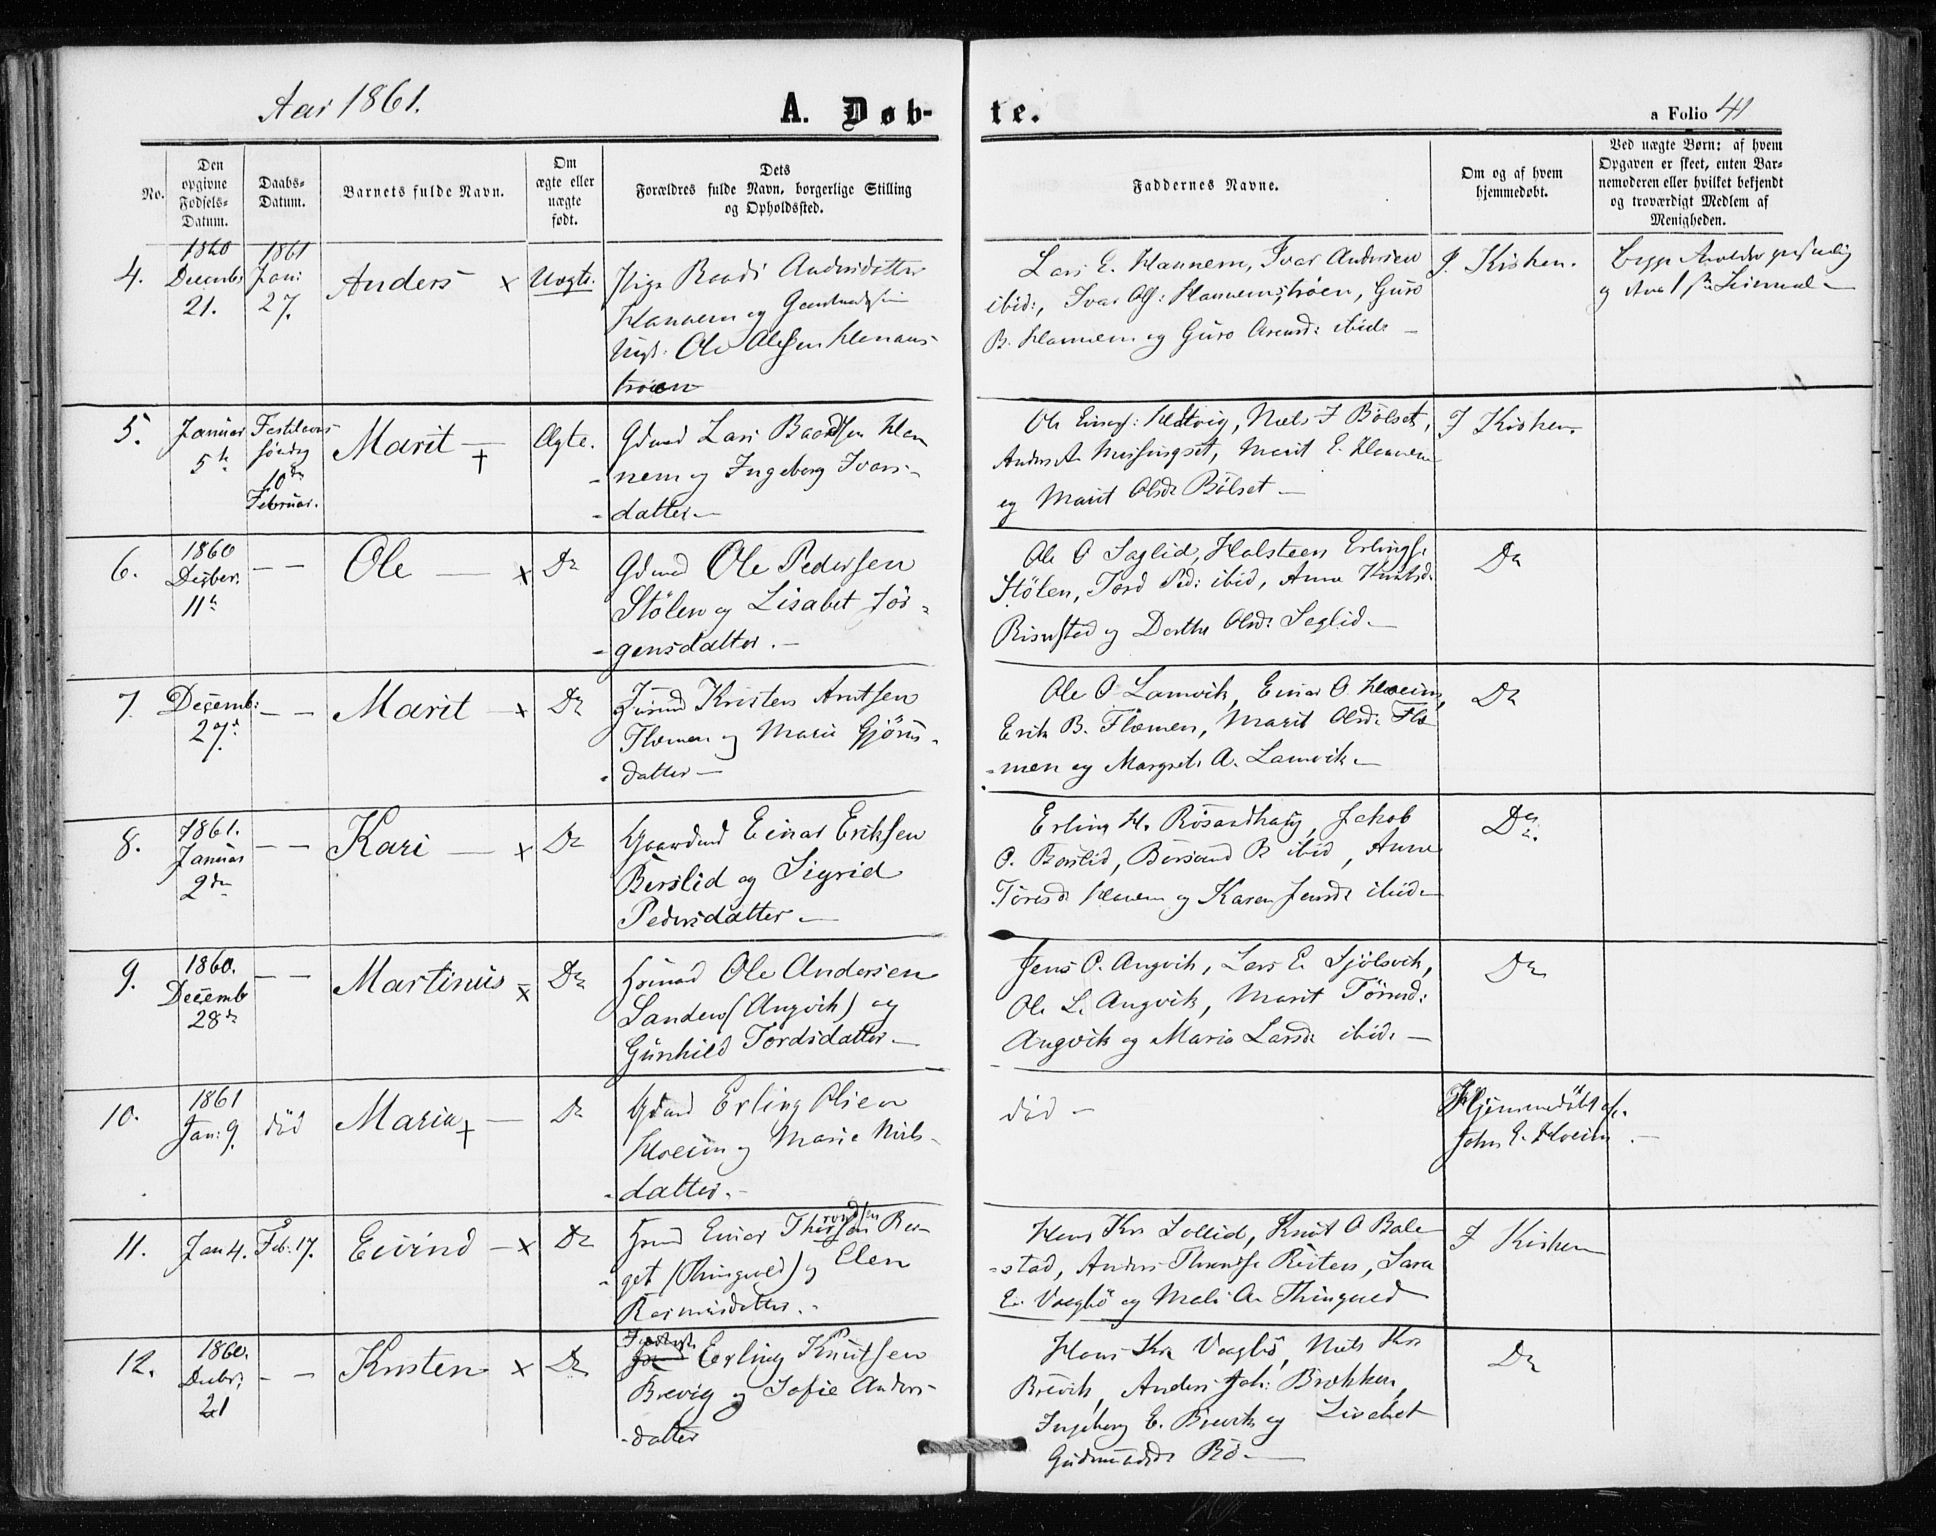 Aar 1861.
A. Døb-
te.
a Folio 41
No.
Den
opgivne
Fødsels-
Datum.
Daabs-
Datum.
Barnets fulde Navn.
Om
ægte eller
uægte
født.
Dets
Forældres fulde Navn, borgerlige Stilling
og Opholdssted.
Faddernes Navne.
Om og af hvem
hjemmedøbt.
Ved uægte Børn: af hvem
Opgaven er skeet, enten Bar-
nemoderen eller hvilket bekjendt
og troværdigt Medlem af
Menigheden.
4.
1860
Decembr
21.
1861
Jan:
27.
Anders x
Uægte.
Pige Andersdatter
Hannem og
Ole Olsen Hanems-
trøen
Lars E. Hannem, Ivar Andersen
ibid:, Ivar Ols: Hannemstrøen, Guro
B. Hannem og Guro ibid: —
I Kirken.
Begge
og
5.
Januar
5te
Fastelavns
søndag
10de
Februar.
Marit — †
Ægte.
Gdmd Lars Baardsen Han
nem og Ingeborg Ivars-
-datter —
Ole Einars: Hestvig, Niels J Bølset,
Anders A. , Marit E. Hannem
og Marit Olsdr Bølset —
I Kirken.
6.
1860
Decber.
11te
— —
Ole — x
Do
Gdmd Ole Pedersen
Stölen og Lisabet Jör-
-gensdatter. —
Ole O Saglid, Halsteen Erlings.
Stölen, Tord Ped: ibid, Anne Knutsd:
og Dorthe Olsdr Saglid —
Do
7.
Decemb:
27de
— —
Marit — x
Do
Kristen Arntsen
Flemmen og Marie Gjörs-
-datter —
Ole O Lamvik, Einar O Hoeim,
Erik B. Flemmen, Marit Olsdr Fle-
-men og Margret A. Lamvik —
Do
8.
1861.
Januar
2den
— —
Kari — x
Do
Gaardmd Einar Eriksen
Berslid og Sigrid
Pedersdatter —
Erling H. Rösandhaug, Jakob
O. Berslid, ibid, Anne
Hanem og Karen Jensdr ibid —
Do.
9.
1860.
Decemb
28de
— —
Martinus x
Do
Ole Andersen
Sanden (Angvik) og
Gunhild Tordsdatter —
Jens O. Angvik, Lars E. Sjölsvik,
Ole L. Angvik, Marit
Angvik og Maria Larsdr ibid. —
Do
10.
1861
Jan: 9.
död
Maria † —
Do
Gdmd Erling Olsen
Hoeim og Marie Niels-
-datter. —
död —
Hjemmedöbt af
John E. Hoeim —
11.
Jan 4.
Feb. 17.
Eivind — x
Do
Einar Rei-
-get (Thingvold) og Elen
Rasmusdatter. —
Hans Kr. Sollid, Knut O Bale-
-stad, Anders Reiten, Sara
E. Vaagbö og Mali A. Thingvold
I Kirken
12.
1860.
Decbr.
21
— —
Kristen x
Do
Erling Knutsen
Brevig og Sofie Anders-
-datter
Hans Kr. Vaagbö, Niels Kr.
Brevik, Anders Joh: Brækken,
Ingeborg E. Brevik og Lisabet
Gudmundsdr Bö —
Do